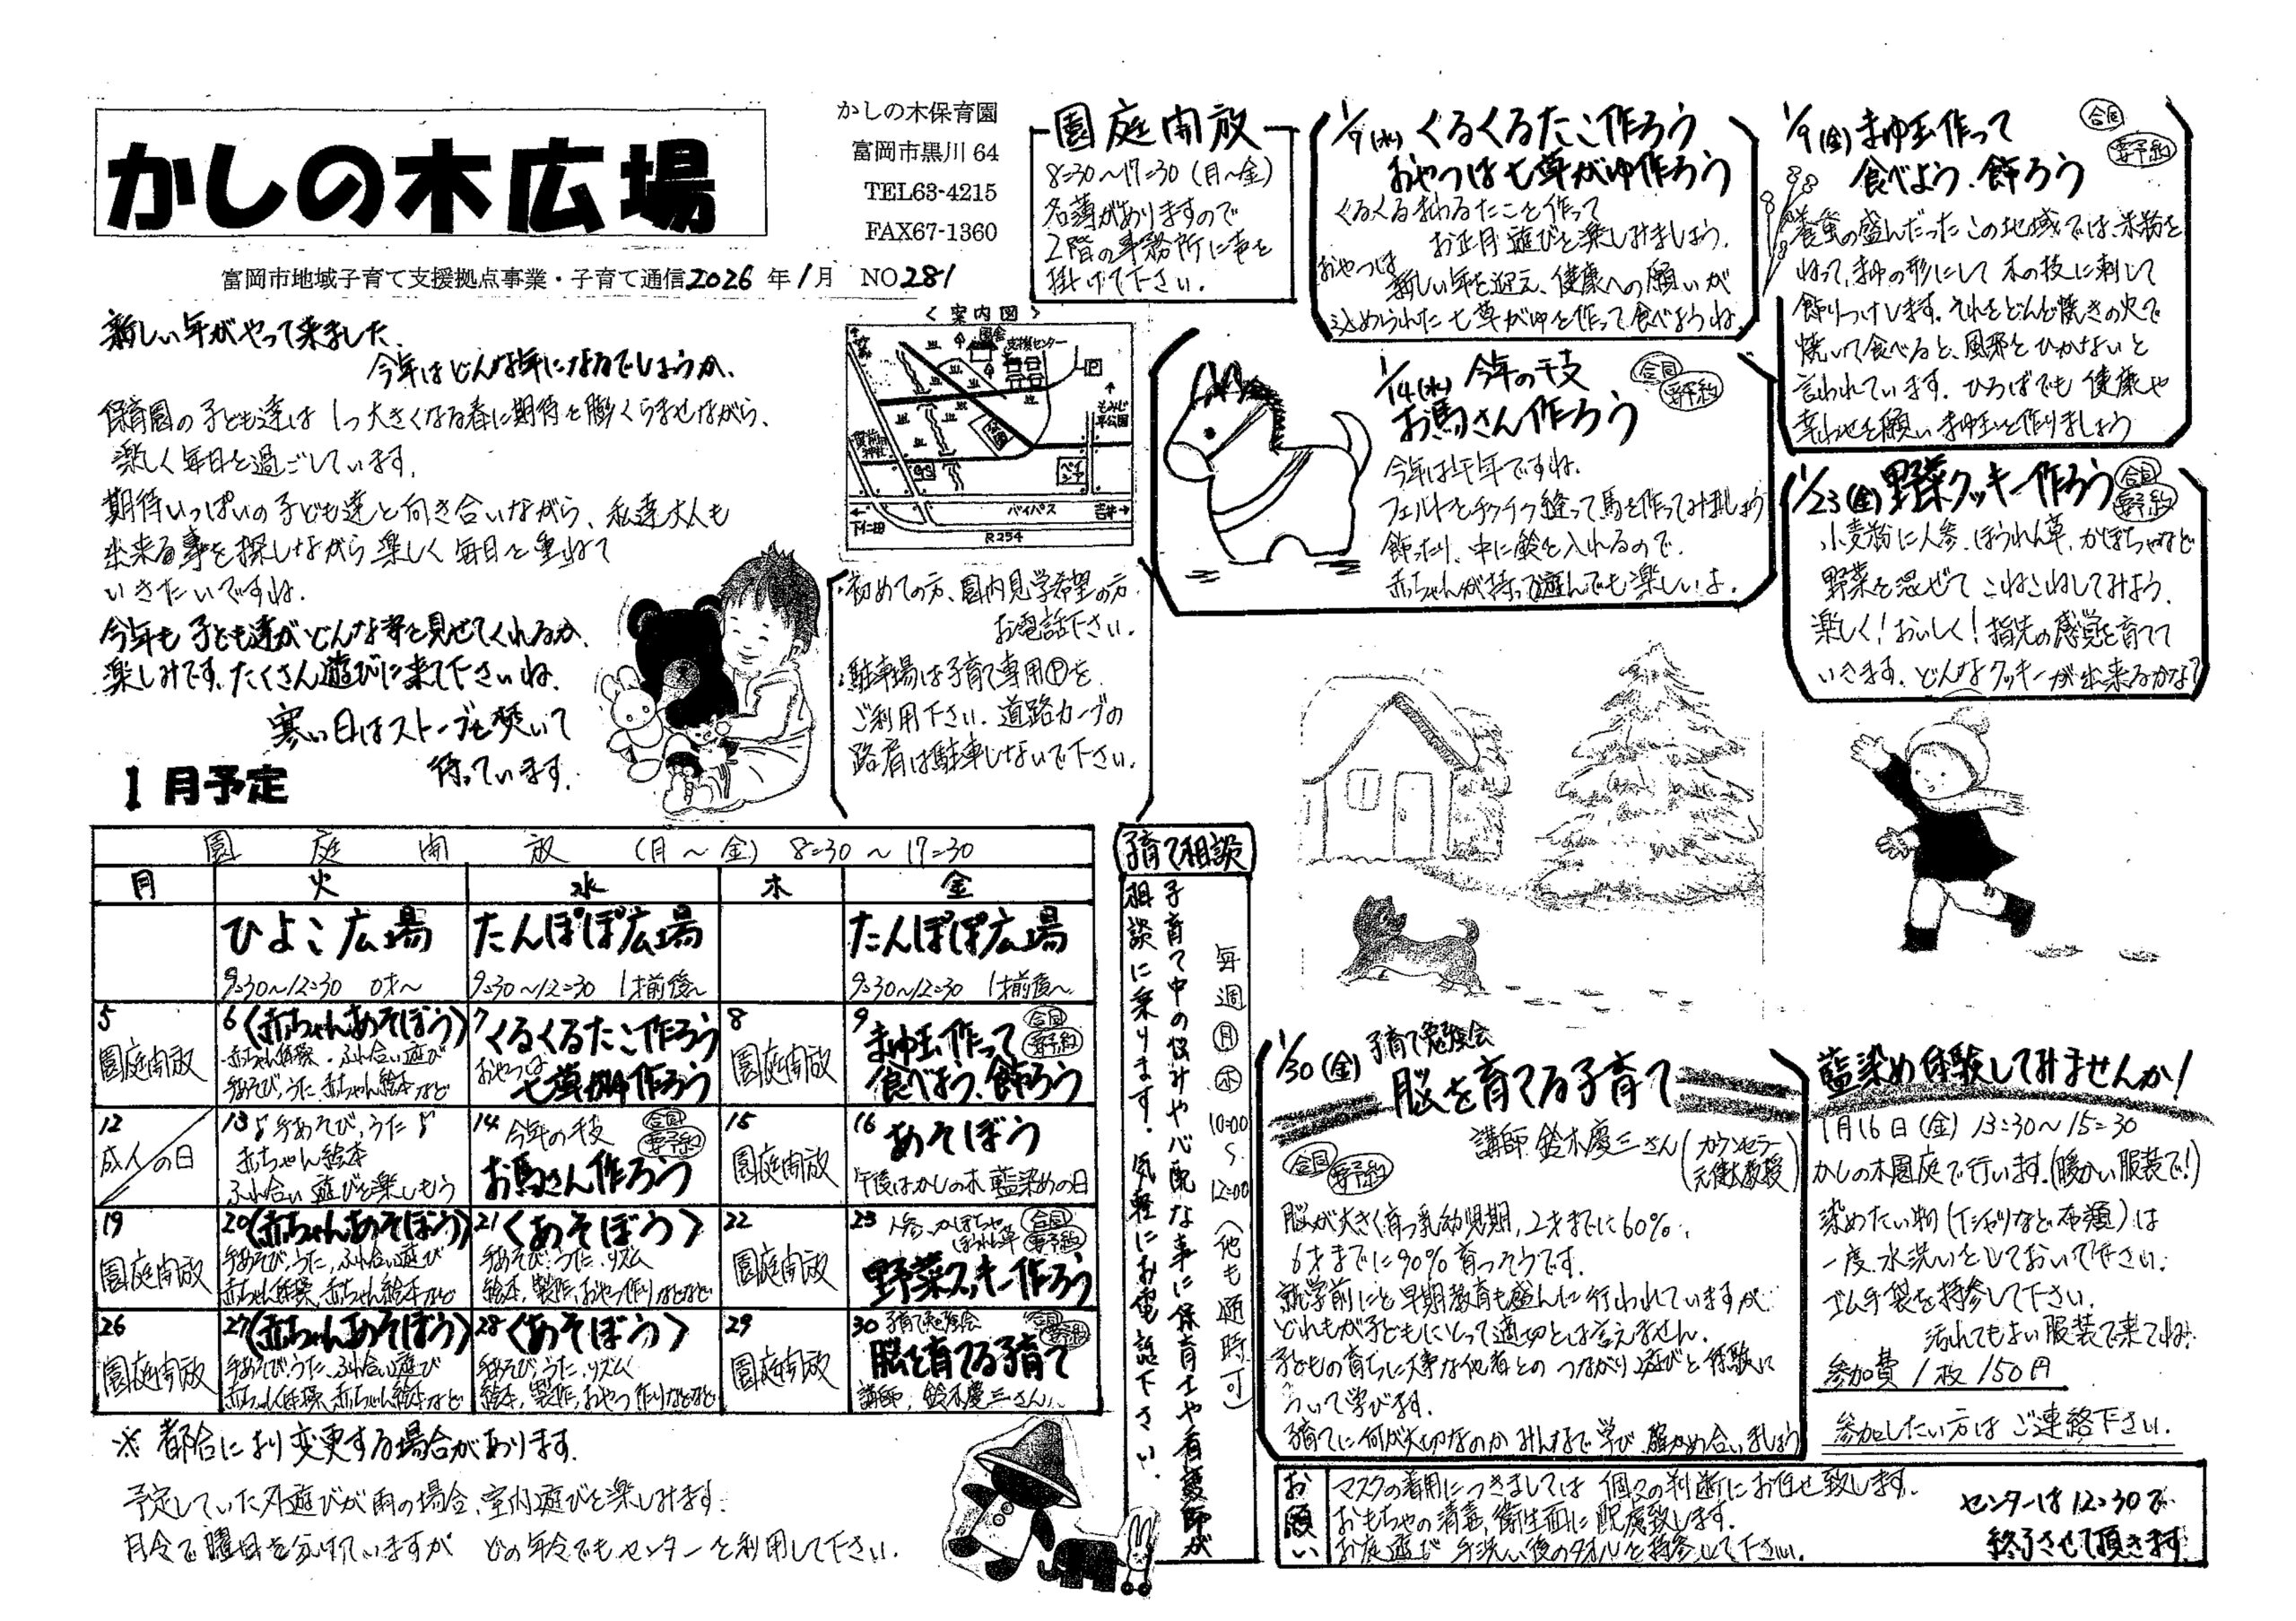 かしの木広場
かしの木保育園
富岡市黒川64
TEL63-4215
FAX67-1360
富岡市地域子育て支援拠点事業・子育て通信2026年1月 NO281
新しい年がやって来ました。
今年はどんな年になるでしょうか。
保育園の子ども達は1つ大きくなる春に期待を膨くらませながら、
楽しく毎日を過ごしています。
期待いっぱいの子ども達と向き合いながら、私達大人も
出来る事を探しながら楽しく毎日を重ねて
いきたいですね。
今年も子ども達がどんな姿を見せてくれるか、
楽しみです。たくさん遊びに来て下さいね。
寒い日はストーブを焚いて
待っています。
<案内図>
支援センター
もみじ平公園
バイパス
下仁田
吉井
R254
・初めての方、園内見学希望の方、
お電話下さい。
・駐車場は子育て専用Ⓟを
ご利用下さい。道路カーブの
路肩は駐車しないで下さい。
園庭開放
8:30〜17:30(月〜金)
名簿がありますので
2階の事務所に声を
掛けて下さい。
1/7(水)くるくるたこ作ろう
おやつは七草がゆ作ろう
くるくるまわるたこを作って
お正月遊びを楽しみましょう。
おやつは
新しい年を迎え、健康への願いが
込められた七草がゆを作って食べようね。
1/9(金)まゆ玉作って
食べよう、飾ろう
合同
要予約
養蚕の盛んだったこの地域では、米粉を
ねって、まゆの形にして木の枝に刺して
飾りつけします。それをどんど焼きの火で
焼いて食べると、風邪をひかないと
言われています。ひろばでも健康や
幸わせを願いまゆ玉を作りましょう
1/14(水)今年の干支
お馬さん作ろう
合同
要予約
今年は午年ですね。
フェルトをチクチク縫って馬を作ってみましょう
飾ったり、中に鈴を入れるので、
赤ちゃんが持って遊んでも楽しいよ。
1/23(金)野菜クッキー作ろう
合同
要予約
小麦粉に人参、ほうれん草、かぼちゃなど
野菜を混ぜてこねこねしてみよう。
楽しく!おいしく!指先の感覚を育てて
いきます。どんなクッキーが出来るかな?
1月予定
園庭開放 (月〜金) 8:30〜17:30
月 火 水 木 金
ひよこ広場
9:30〜12:30 0才〜
たんぽぽ広場
9:30〜12:30 1才前後〜
たんぽぽ広場
9:30〜12:30 1才前後〜
5
園庭開放
6〈赤ちゃんあそぼう〉
赤ちゃん体操、ふれ合い遊び
手あそび、うた、赤ちゃん絵本など
7くるくるたこ作ろう
おやつは
七草がゆ作ろう
8
園庭開放
9まゆ玉作って
食べよう、飾ろう
合同
要予約
12
成人の日
13♪手あそび、うた♪
赤ちゃん絵本
ふれ合い遊びを楽しもう
14今年の干支
お馬さん作ろう
合同
要予約
15
園庭開放
16あそぼう
午後はかしの木藍染めの日
19
園庭開放
20〈赤ちゃんあそぼう〉
手あそび、うた、ふれ合い遊び
赤ちゃん体操、赤ちゃん絵本など
21〈あそぼう〉
手あそび、うた、リズム
絵本、製作、おやつ作りなどなど
22
園庭開放
23人参、かぼちゃ
ほうれん草
合同
要予約
野菜クッキー作ろう
26
園庭開放
27〈赤ちゃんあそぼう〉
手あそび、うた、ふれ合い遊び
赤ちゃん体操、赤ちゃん絵本など
28〈あそぼう〉
手あそび、うた、リズム
絵本、製作、おやつ作りなどなど
29
園庭開放
30子育て勉強会
合同
要予約
脳を育てる子育て
講師、鈴木慶三さん
※都合により変更する場合があります。
予定していた外遊びが雨の場合、室内遊びを楽しみます。
月令で曜日を分けていますが どの年令でもセンターを利用して下さい。
子育て相談
毎週月水10:00〜12:00(他も随時可)
子育て中の悩みや心配な事に保育士や看護師が
相談に乗ります。気軽にお電話下さい。
1/30(金)子育て勉強会
脳を育てる子育て
合同
要予約
講師 鈴木慶三さん(カウンセラー 元健大教授)
脳が大きく育つ乳幼児期、2才までに60%、
6才までに90%育つそうです。
就学前にと早期教育も盛んに行われていますが、
どれもが子どもにとって適切とは言えません。
子どもの育ちに大事な他者とのつながり、遊びと体験に
ついて学びます。
子育てに何が大切なのかみんなで学び、確かめ合いましょう
藍染め体験してみませんか!
1月16日(金) 13:30〜15:30
かしの木園庭で行います。(暖かい服装で!)
染めたい物(Tシャツなど布類)は
一度、水洗いをしておいて下さい。
ゴム手袋を持参して下さい。
汚れてもよい服装で来てね。
参加費 1枚150円
参加したい方はご連絡下さい。
お願い
マスクの着用につきましては個々の判断にお任せ致します。
おもちゃの消毒、衛生面に配慮致します。
お庭遊び 手洗い後のタオルを持参して下さい。
センターは12:30で
終了させて頂きます